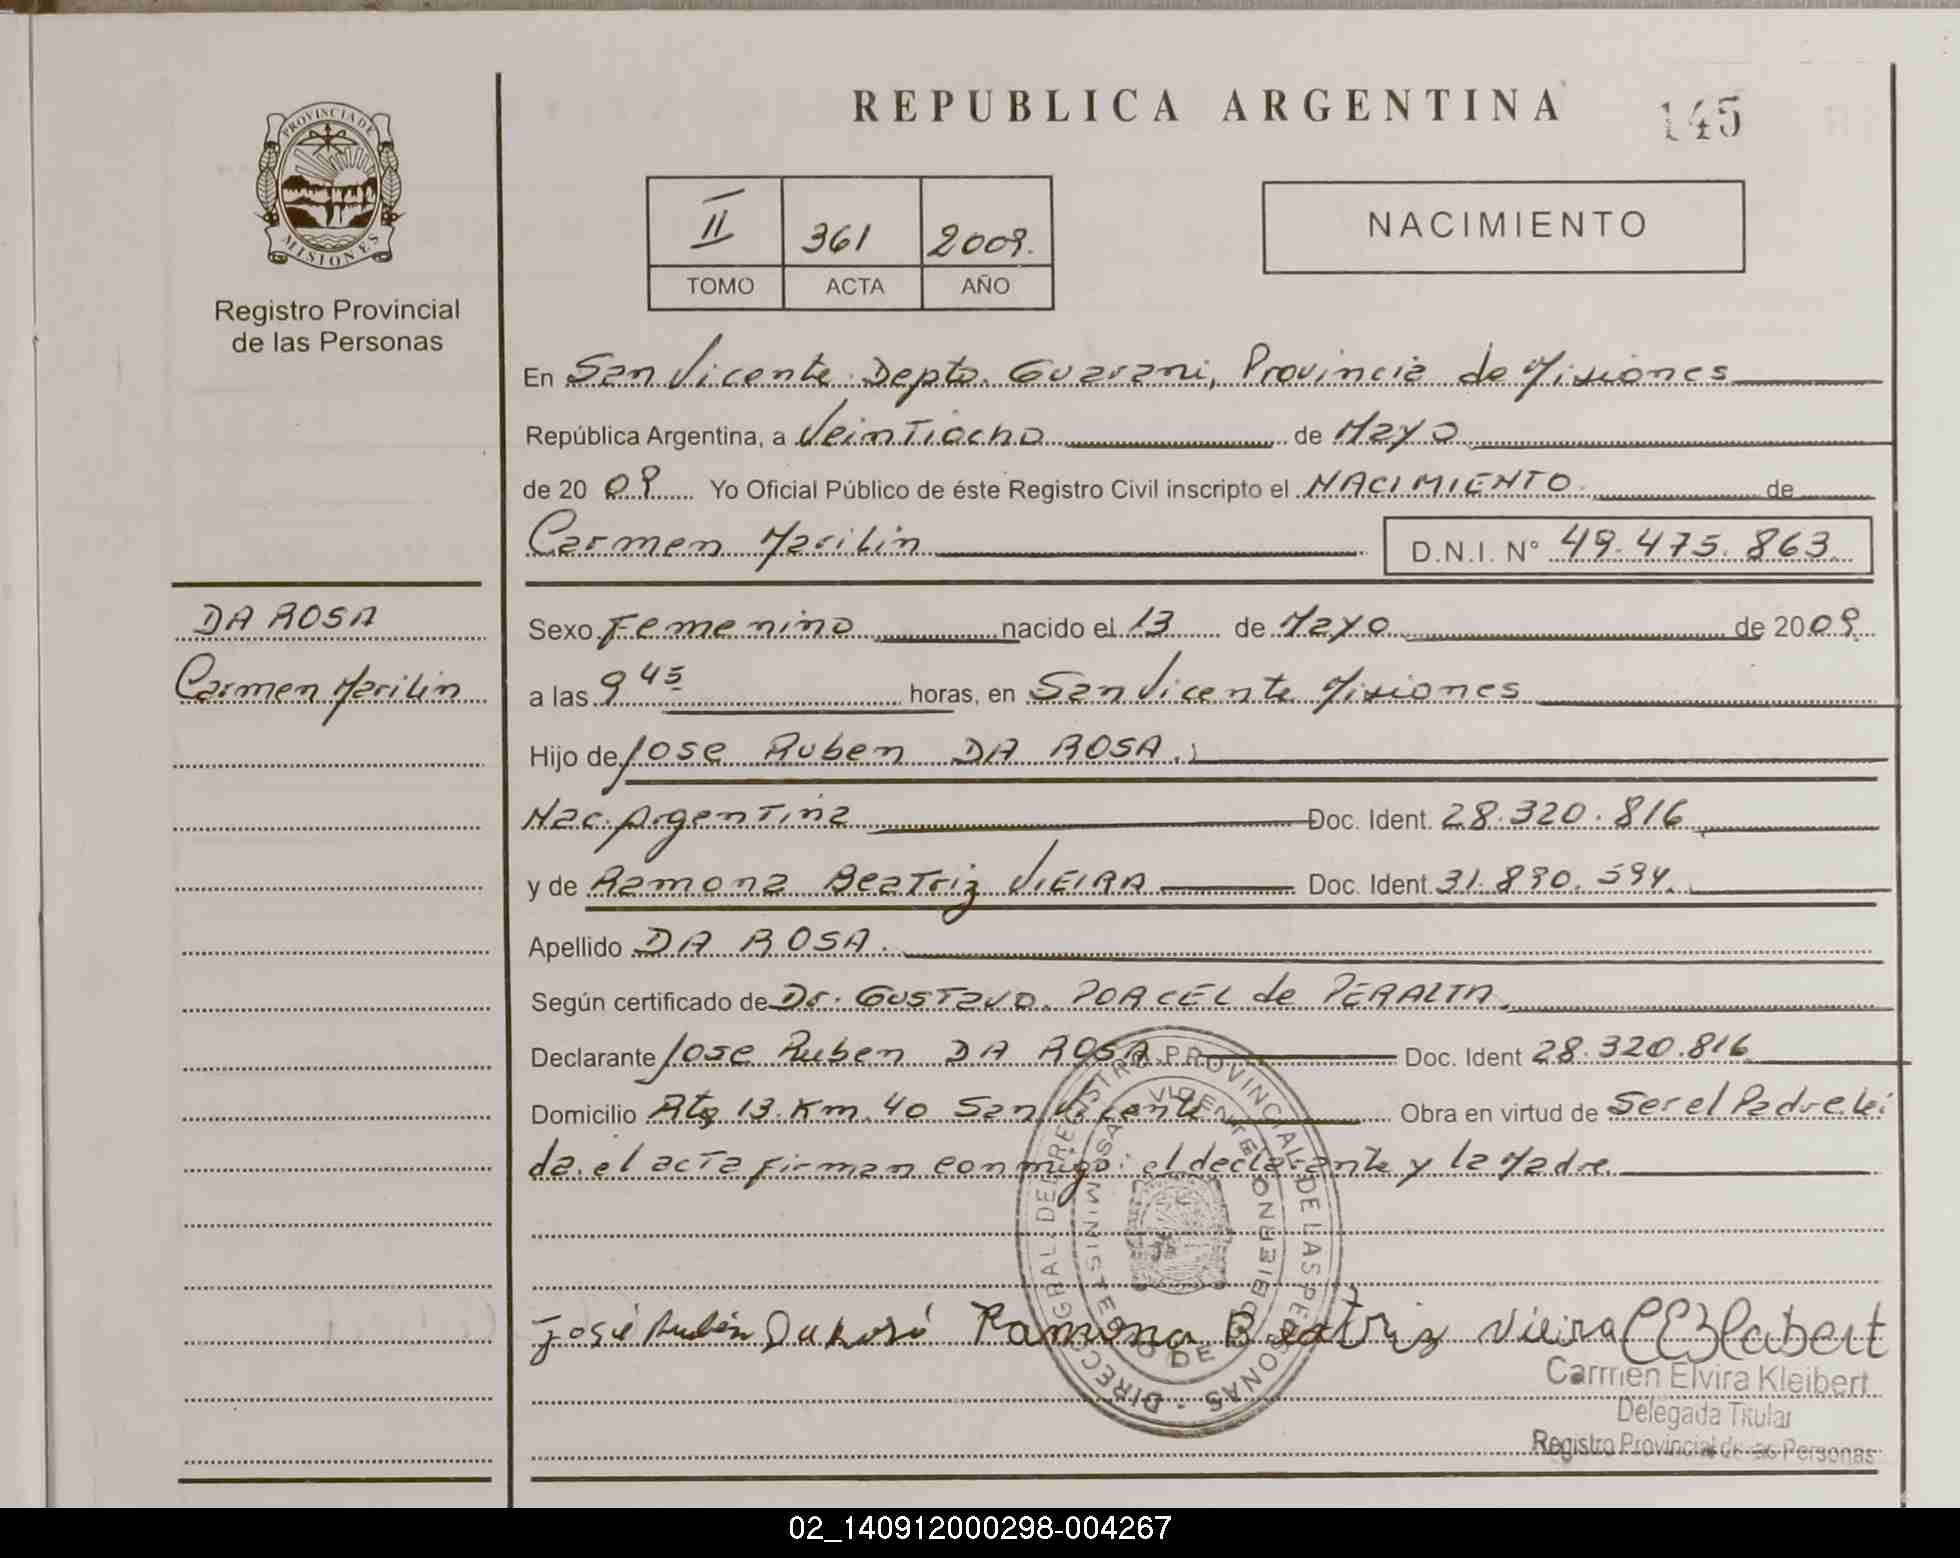 REPUBLICA ARGENTINA
145
PROVINCIA DE
MISIONES
Registro Provincial
de las Personas
II 361 2009.
TOMO ACTA AÑO
NACIMIENTO
En San Vicente Depto. Guarani, Provincia de Misiones
República Argentina, a Veintiocho de Mayo
de 20 09 Yo Oficial Público de éste Registro Civil inscripto el NACIMIENTO de
Carmen Marilin D.N.I. N° 49.475.863
DA ROSA
Carmen Marilin
Sexo Femenino nacido el 13 de Mayo de 2009
a las 9 45 horas, en San Vicente Misiones
Hijo de Jose Ruben DA ROSA.
Nac. Argentina Doc. Ident. 28.320.816
y de Ramona Beatriz VIEIRA Doc. Ident. 31.
Apellido DA ROSA.
Según certificado de Dr. Gustavo. PORCEL de PERALTA
Declarante Jose Ruben DA ROSA Doc. Ident 28.320.816
Domicilio Rta 13. Km. 40 San Vicente Obra en virtud de Ser el Padre leí
da el acta firman conmigo el declarante y la Madre
DIRECC. GRAL. DEL REGISTRO PROVINCIAL DE LAS PERSONAS
MINISTERIO DE GOBIERNO
José Rubén Da Rosa Ramona Beatriz Vieira
Carmen Elvira Kleibert
Delegada Titular
Registro Provincial de las Personas
02_140912000298-004267